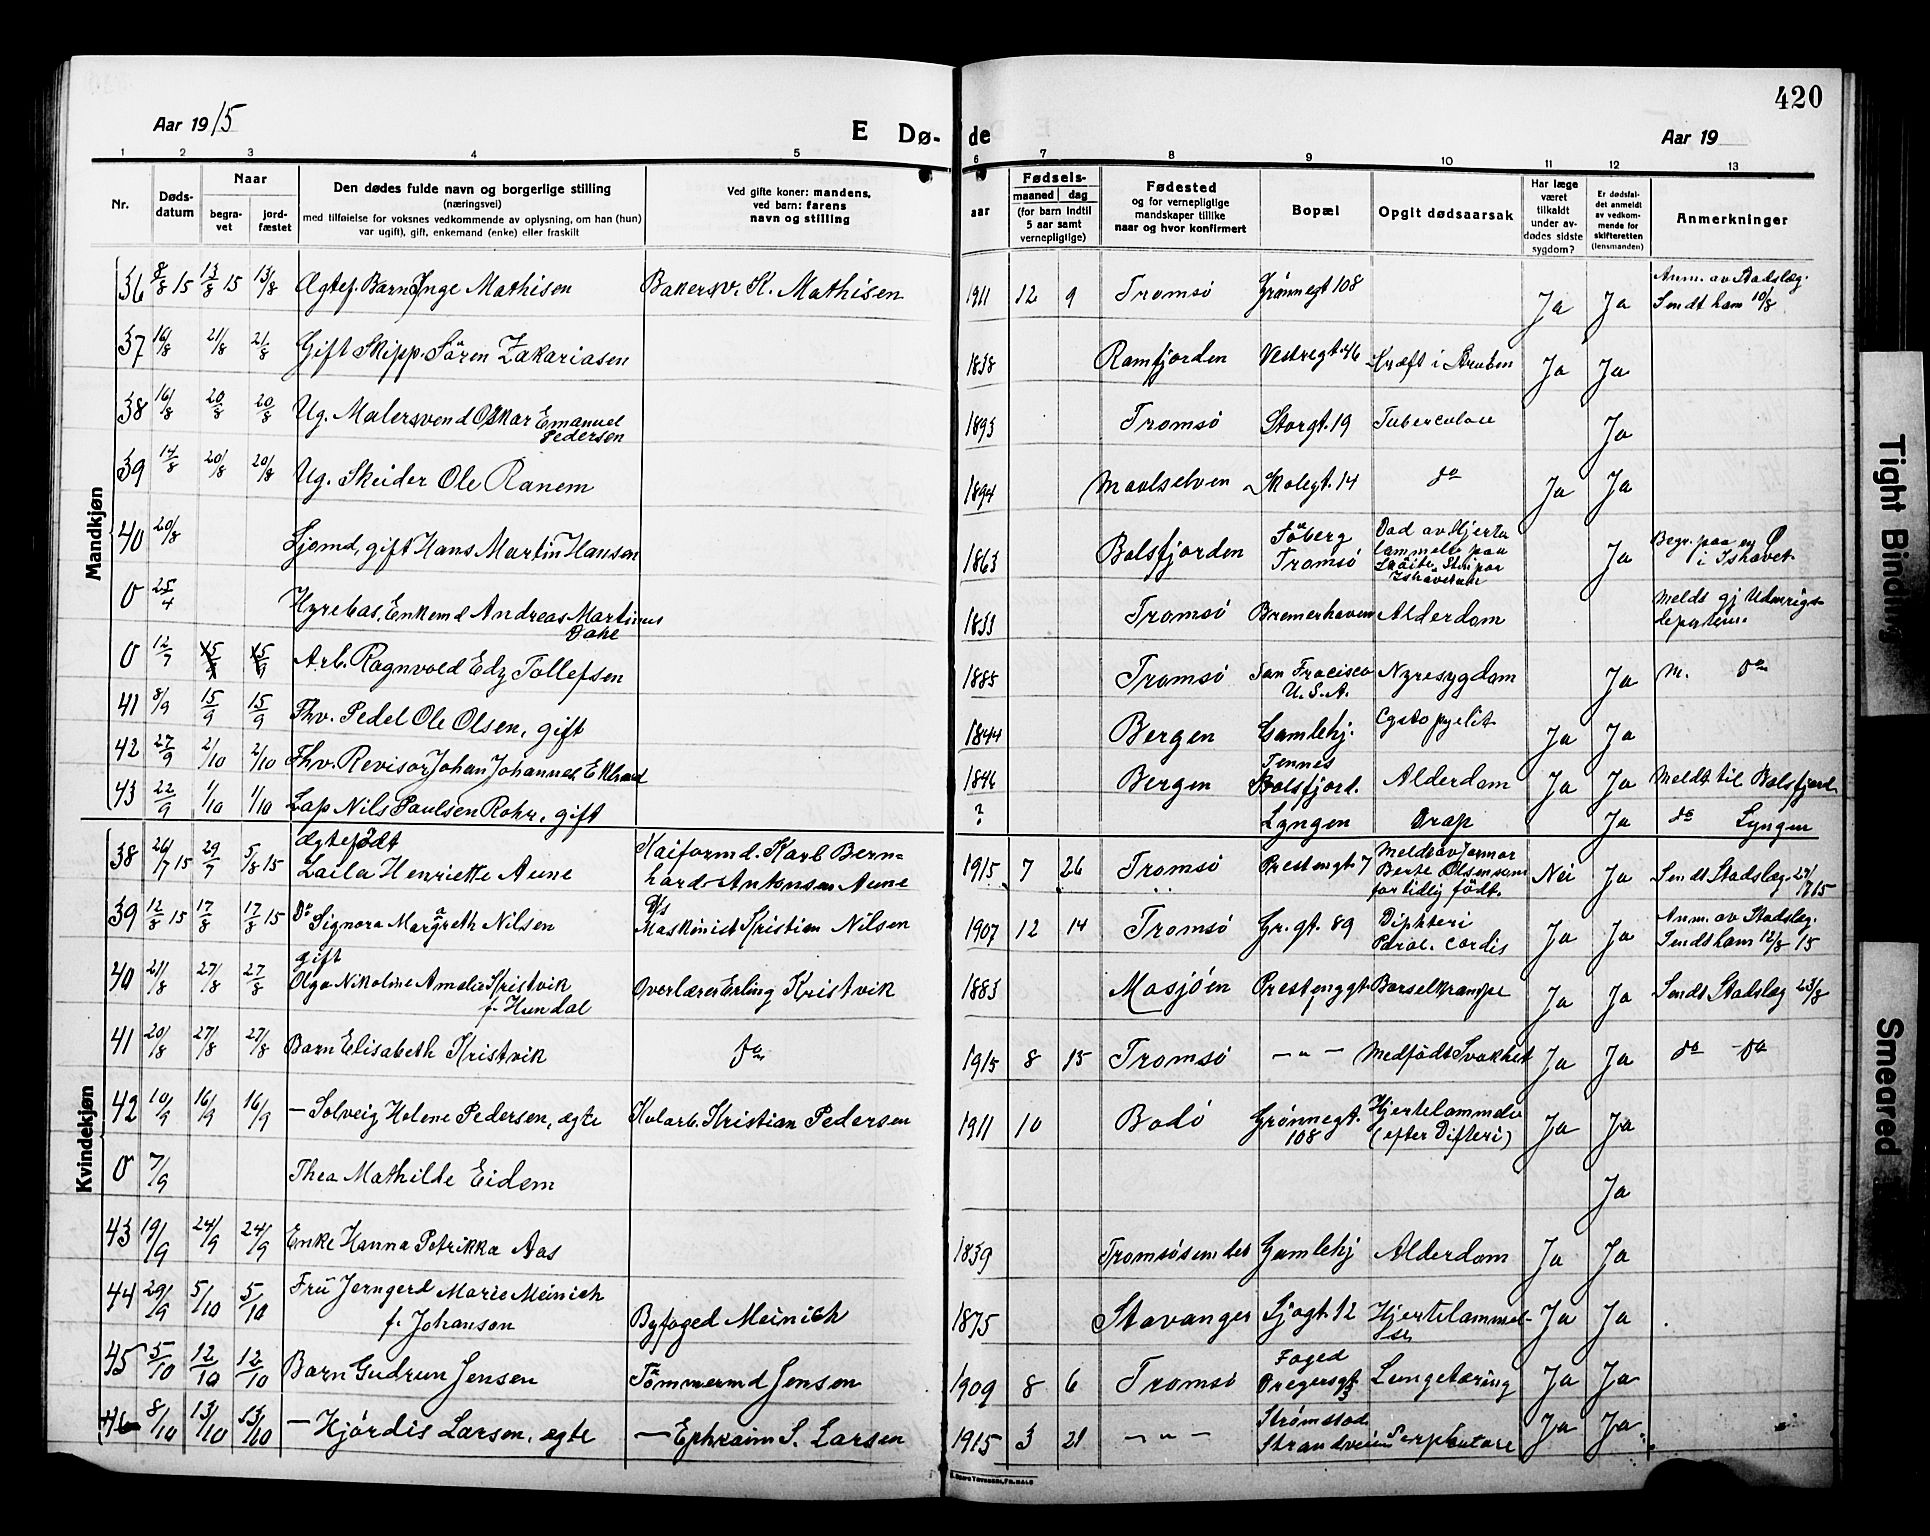 420
Aar 1915
E Dø-
de
Aar 19
1 2 3 4 5 6 7 8 9 10 11 12 13
Nr.
Døds-
datum
Naar
begra-
vet
jord-
fæstet
Den dødes fulde navn og borgerlige stilling
(næringsvei)
med tilføielse for voksnes vedkommende av oplysning, om han (hun)
var ugift), gift, enkemand (enke) eller fraskilt
Ved gifte koner: mandens,
ved barn: farens
navn og stilling
Fødsels-
aar
maaned dag
(for barn indtil
5 aar samt
vernepligtige)
Fødested
og for vernepligtige
mandskaper tillike
naar og hvor konfirmert
Bopæl
Opgit dødsaarsak
Har læge
været
tilkaldt
under av-
dødes sidste
sygdom?
Er dødsfal-
det anmeldt
av vedkom-
mende for
skifteretten
(lensmanden)
Anmerkninger
Mandkjøn
36 8/8 15 13/8 15 13/8 Ægtef. Barn Inge Mathisen Bakersv. K. Mathisen 1911 12 9 Tromsø Grønnegt 108 Ja Ja Anm. av Stadslæg.
Sendt ham 10/8
37 16/8 21/8 21/8 Gift Skipp. Sören Zakariasen 1838 Ramfjorden Vestregt. 46 Kræft i Struben Ja Ja
38 16/8 20/8 20/8 Ug. Malersvend Oskar Emanuel
Pedersen 1893 Tromsø Storgt. 19 Tuberculose Ja
39 14/8 20/8 20/8 Ug. Skeider Ole Ranem 1894 Maalselven Skolegt. 14 do Ja Ja
40 20/8 Fjemd, gift Hans Martin Hansen 1863 Balsfjorden Söberg
Tromsø Död av Hjerte
lammelse paa
Ishavetur Ja Begr. paa en Ø
i Ishavet
0 25/4 Hyrebas, Enkemd Andreas Martinus
Dahl 1833 Tromsø Bremerhaven Alderdom Meldt gj Udenrigs
departem.
0 12/7 Arb. Ragnvald Edz Tollefsen 1885 Tromsø San Fracisco
U.S.A. Nyresygdom Ja M. do
41 8/9 15/9 15/9 Fhv. Pedel Ole Olsen, gift 1844 Bergen Gamlehj. Cystopyelit Ja Ja
42 27/9 2/10 2/10 Fhv. Revisor Johan Johannes 1846 Bergen Tennes
Balsfjord. Alderdom Ja Ja Meldt til Balsfjord
43 22/9 1/10 1/10 Lap Nils Paulsen Rohr, gift ? Lyngen Drap Ja do Lyngen
Kvindekjøn
38 26/7 15 29/7 5/8 15 Ægtefödt
Laila Henriette Aune Kaiformd. Karl Bern-
hard Antonsen Aune 1915 7 26 Tromsø Prestengt 7 Meldt av Jormor
Berte Olsen som
for tidlig födt. Nei Ja Sendt Stadslæg. 29/7 15
39 12/8 15 17/8 17/8 15 Do Signora Margreth Nilsen Maskinist Kristian Nilsen 1907 12 14 Tromsø Gr. gt. 89 Diphteri
Paral. cordis Ja Ja Anm. av Stadslæg.
Sendt ham 12/8 15
40 21/8 27/8 27/8 gift
Olga Nikoline Amalie Kristvik
f. Hundal Overlærer Erling Kristvik 1883 Mosjöen Prestenggt Barselkrampe Ja Ja Sendt Stadslæg 23/8
41 20/8 27/8 27/8 Barn Elisabeth Kristvik do 1915 8 15 Tromsø — " — Medfödt Svakhet Ja Ja do do
42 10/9 16/9 16/9 — Solveig Helene Pedersen, ægte Kularb. Kristian Pedersen 1911 10 Bodö Grønnegt.
108 Hjertelammelse
(efter Difteri) Ja Ja
0 7/9 Thea Mathilde Eidem Ja
43 19/9 24/9 24/9 Enke Hanna Petrikka Aas 1839 Tromsøsundet Gamlehj Alderdom Ja Ja
44 29/9 5/10 5/10 Frü Jerngerd Marie Meinich
f. Johanson Byfoged Meinich 1875 Stavanger Sjøgt. 12 Hjertelammel-
se Ja Ja
45 5/10 12/10 12/10 Barn Gudrun Jensen Tömmermd Jensen 1909 8 6 Tromsø Foged
Dregersgt 3 Lungetæring Ja Ja
46 8/10 13/10 13/10 — Hjördis Larsen, ægte — Ephraim S. Larsen 1915 3 21 — " — Strømstad
Strandveien Ja Ja
Tight Binding
Smeared